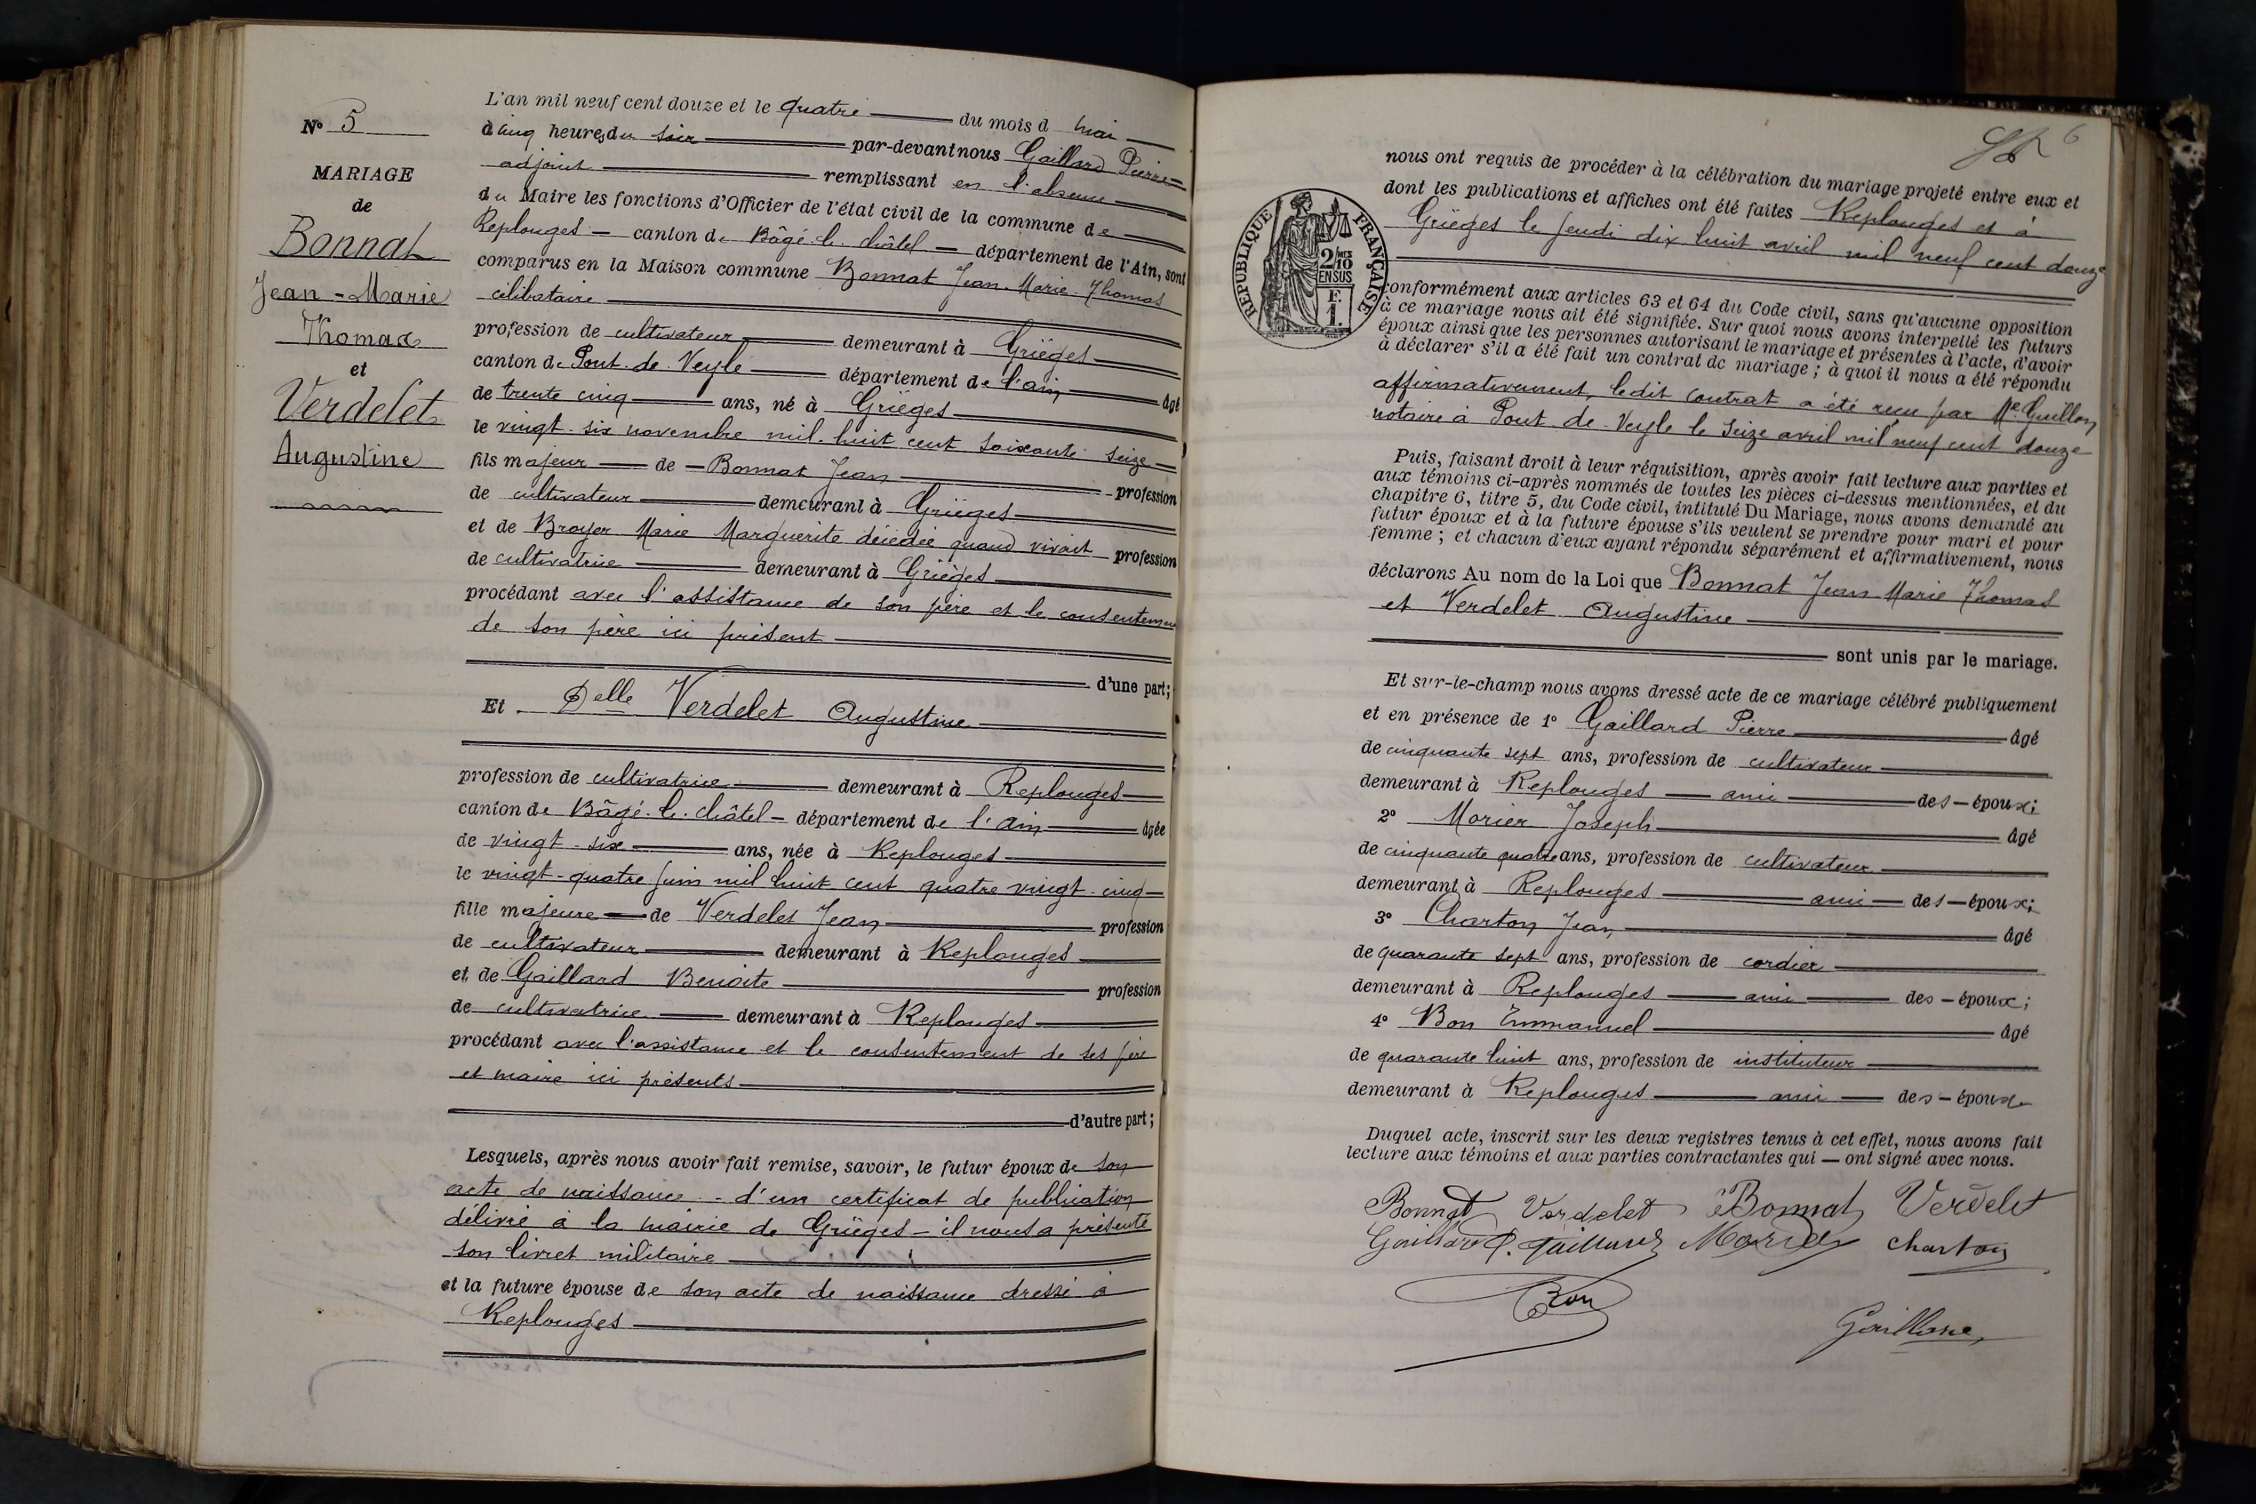 N° 5
MARIAGE
de
Bonnat
Jean-Marie
Thomas
et
Verdelet
Augustine
L'an mil neuf cent douze et le quatre du mois d mai
à cinq heures du soir par-devant nous Gaillard Pierre
adjoint remplissant en l'absence
du Maire les fonctions d'Officier de l'état civil de la commune de
Replonges canton de Bâgé-le-châtel département de l'Ain, sont
comparus en la Maison commune Bonnat Jean-Marie-Thomas
célibataire
profession de cultivateur demeurant à Grièges
canton de Pont-de-Veyle département de l'ain âgé
de trente cinq ans, né à Grièges
le vingt-six novembre mil-huit cent soixante seize
fils majeur de Bonnat Jean profession
de cultivateur demeurant à Grièges
et de Broyer Marie Marguerite décédée quand vivait profession
de cultivatrice demeurant à Grièges
procédant avec l'assistance de son père et le consentement
de son père ici présent
d'une part;
Et Delle Verdelet Augustine
profession de cultivatrice demeurant à Replonges
canton de Bâgé-le-châtel département de l'ain âgée
de vingt-six ans, née à Replonges
le vingt-quatre juin mil huit cent quatre vingt-cinq
fille majeure de Verdelet Jean profession
de cultivateur demeurant à Replonges
et de Gaillard Benoite profession
de cultivatrice demeurant à Replonges
procédant avec l'assistance et le consentement de ses père
et maire ici présents
d'autre part;
Lesquels, après nous avoir fait remise, savoir, le futur époux de son
acte de naissance - d'un certificat de publication
délivré à la mairie de Grièges - il nous a présenté
son livret militaire
et la future épouse de son acte de naissance dressé à
Replonges
6
RÉPUBLIQUE FRANÇAISE
2/10
EN SUS
F.
1.
nous ont requis de procéder à la célébration du mariage projeté entre eux et
dont les publications et affiches ont été faites Replonges et à
Grièges le jeudi dix huit avril mil neuf cent douze
conformément aux articles 63 et 64 du Code civil, sans qu'aucune opposition
à ce mariage nous ait été signifiée. Sur quoi nous avons interpellé les futurs
époux ainsi que les personnes autorisant le mariage et présentes à l'acte, d'avoir
à déclarer s'il a été fait un contrat de mariage ; à quoi il nous a été répondu
affirmativement, ledit contrat a été reçu par Me Guillon
notaire à Pont-de-Veyle le seize avril mil neuf cent douze
Puis, faisant droit à leur réquisition, après avoir fait lecture aux parties et
aux témoins ci-après nommés de toutes les pièces ci-dessus mentionnées, et du
chapitre 6, titre 5, du Code civil, intitulé Du Mariage, nous avons demandé au
futur époux et à la future épouse s'ils veulent se prendre pour mari et pour
femme ; et chacun d'eux ayant répondu séparément et affirmativement, nous
déclarons Au nom de la Loi que Bonnat Jean Marie Thomas
et Verdelet Augustine
sont unis par le mariage.
Et sur-le-champ nous avons dressé acte de ce mariage célébré publiquement
et en présence de 1° Gaillard Pierre âgé
de cinquante sept ans, profession de cultivateur
demeurant à Replonges ami des époux;
2° Morier Joseph âgé
de cinquante quatre ans, profession de cultivateur
demeurant à Replonges ami des époux;
3° Charton Jean âgé
de quarante sept ans, profession de cordier
demeurant à Replonges ami des époux;
4° Bon Emmanuel âgé
de quarante huit ans, profession de instituteur
demeurant à Replonges ami des époux
Duquel acte, inscrit sur les deux registres tenus à cet effet, nous avons fait
lecture aux témoins et aux parties contractantes qui ont signé avec nous.
Bonnat Verdelet Bonnat Verdelet
Gaillard P. Gaillard Morier Charton
Bon
Gaillard